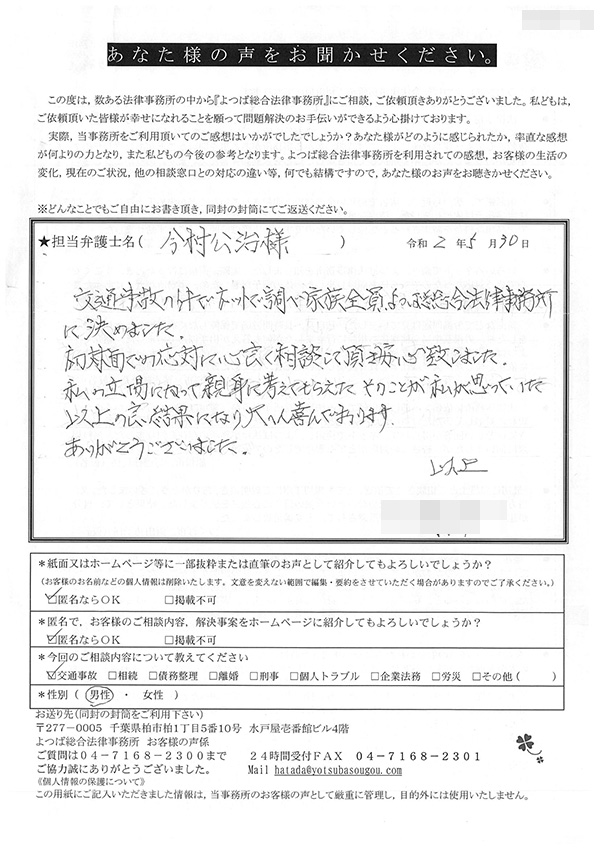 あなた様の声をお聞かせください。
この度は，数ある法律事務所の中から『よつば総合法律事務所』にご相談，ご依頼頂きありがとうございました。私どもは，
ご依頼頂いた皆様が幸せになれることを願って問題解決のお手伝いができるよう心掛けております。
実際，当事務所をご利用頂いてのご感想はいかがでしたでしょうか？あなた様がどのように感じられたか，率直な感想
が何よりの力となり，また私どもの今後の参考となります。よつば総合法律事務所を利用されての感想，お客様の生活の
変化，現在のご状況，他の相談窓口との対応の違い等，何でも結構ですので，あなた様のお声をお聴きかせください。
※どんなことでもご自由にお書き頂き，同封の封筒にてご返送ください。
★担当弁護士名（ 今村公治様 ） 令和 2 年 5 月 30 日
交通事故の件でネットで調べ家族全員よつば総合法律事務所
に決めました。
初対面での応対に心良く相談して頂き安心致しました。
私の立場になって親身に考えてもらえた そのことが私が思っていた
以上の良い結果になり大へん喜んでおります
ありがとうございました。
以上
＊紙面又はホームページ等に一部抜粋または直筆のお声として紹介してもよろしいでしょうか？
（お客様のお名前などの個人情報は削除いたします。文意を変えない範囲で編集・要約をさせていただく場合がありますのでご了承ください。）
☑匿名ならＯＫ □掲載不可
＊匿名で，お客様のご相談内容，解決事案をホームページに紹介してもよろしいでしょうか？
☑匿名ならＯＫ □掲載不可
＊今回のご相談内容について教えてください
☑交通事故 □相続 □債務整理 □離婚 □刑事 □個人トラブル □企業法務 □労災 □その他（ ）
＊性別（ 男性 ・ 女性 ）
お送り先（同封の封筒をご利用下さい）
〒277－0005 千葉県柏市柏1丁目5番10号 水戸屋壱番館ビル4階
よつば総合法律事務所 お客様の声係
ご質問は０４－７１６８－２３００まで ２４時間受付ＦＡＸ ０４－７１６８－２３０１
ご協力誠にありがとうございました。 Mail hatada@yotsubasougou.com
《個人情報の保護について》
この用紙にご記入いただきました情報は，当事務所のお客様の声として厳重に管理し，目的外には使用いたしません。